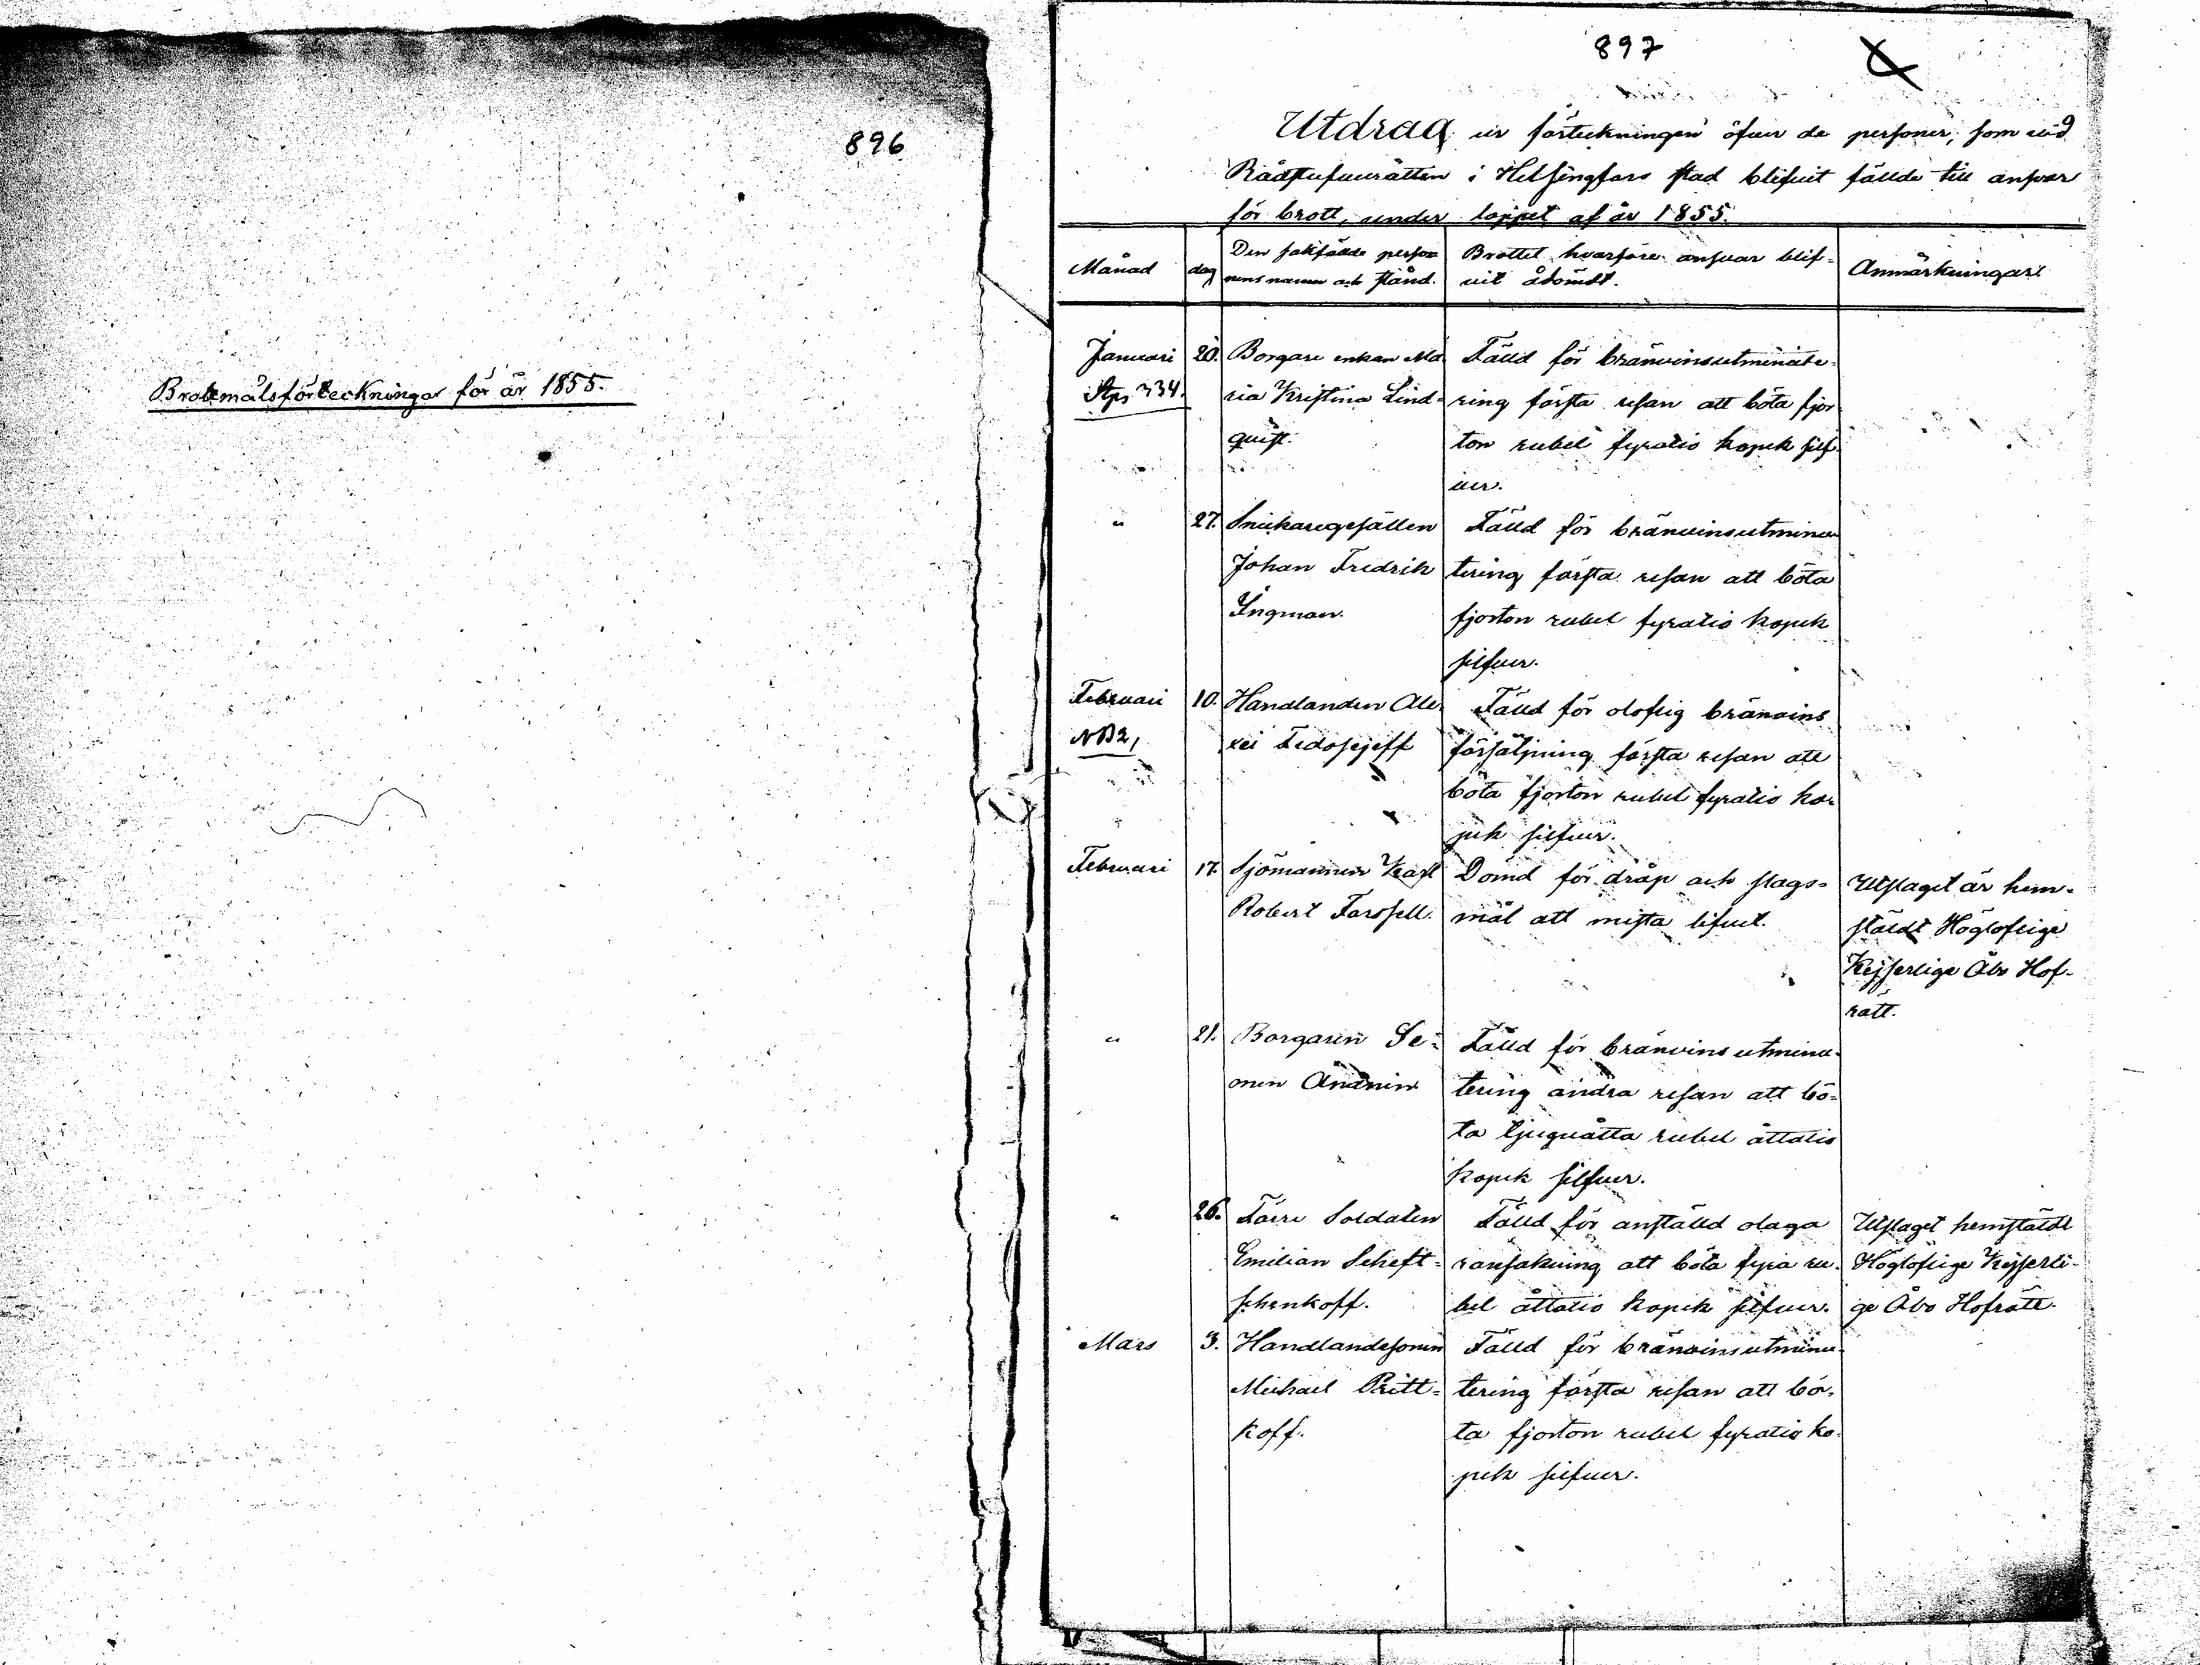 896
Brottmålsförteckningar för år 1855.
897
Utdrag ur förteckningen öfver de personer, som vid
Rådstufvurätten i Helsingfors stad blifvit fällde till ansvar
för brott, under loppet af år 1855.
Månad
dag
Den sakfällde perso
nens namn och stånd.
Brottet hvarföre ansvar blif-
vit ådömdt.
Anmärkningar
Januari
20.
Borgare enkan Ma
ria Kristina Lind-
quist.
Fälld för bränvinsutminute-
ring första resan att böta fjor
ton rubel fyratio kopek silf-
ver.
334.
"
27.
Snickaregesällen
Johan Fredrik
Ingman.
Fälld för bränvinsutminu
tering första resan att böta
fjorton rubel fyratio kopek
silfver.
Februari
NB 2,
10.
Handlanden Ale-
xei Fedosejeff
Fälld för oloflig bränvins
försäljning första resan att
böta fjorton rubel fyratio ko-
pek silfver.
Februari
17.
Sjömannen Karl
Robert Forssell.
Dömd för dråp och slags-
mål att mista lifvet.
Utslaget är hem-
stäldt Högloflige
Kejserlige Åbo Hof-
rätt.
"
21.
Borgaren Se-
men Ananin
Fälld för bränvinsutminu-
tering andra resan att bö-
ta tjuguåtta rubel åttatio
kopek silfver.
"
26.
Förre Soldaten
Emilian Scheft-
schenkoff.
Fälld för anställd olaga
ransakning att böta fyra ru-
bel åttatio kopek silfver.
Utslaget hemstäldt
Högloflige Kejserli-
ge Åbo Hofrätt.
Mars
3.
Handlandesonen
Michael Pritt-
koff.
Fälld för bränvinsutminu-
tering första resan att bö-
ta fjorton rubel fyratio ko-
pek silfver.